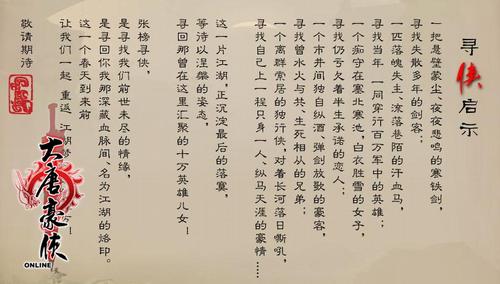 寻侠启示
一把悬壁蒙尘、夜夜悲鸣的寒铁剑，
寻找失散多年的剑客；
一匹落魄失主、流落巷陌的汗血马，
寻找当年一同穿行百万军中的英雄；
一个痴守在塞北寒池，白衣胜雪的女子，
寻找仍亏欠着半生承诺的恋人；
一个市井间独自纵酒、弹剑放歌的豪客，
寻找曾水火与共、生死相从的兄弟；
一个离群索居的独行侠，对着长河落日嘶吼，
寻找自己上一程只身一人、纵马天涯的豪情……
这一片江湖，正沉淀最后的落寞，
等待以涅槃的姿态，
寻回那曾在这里汇聚的十万英雄儿女！
张榜寻侠，
是寻找我们前世未尽的情缘，
是寻回你我那深藏血脉间、名为江湖的烙印。
这一个春天到来前
让我们一起 重返 江湖
敬请期待
大唐豪侠
ONLINE